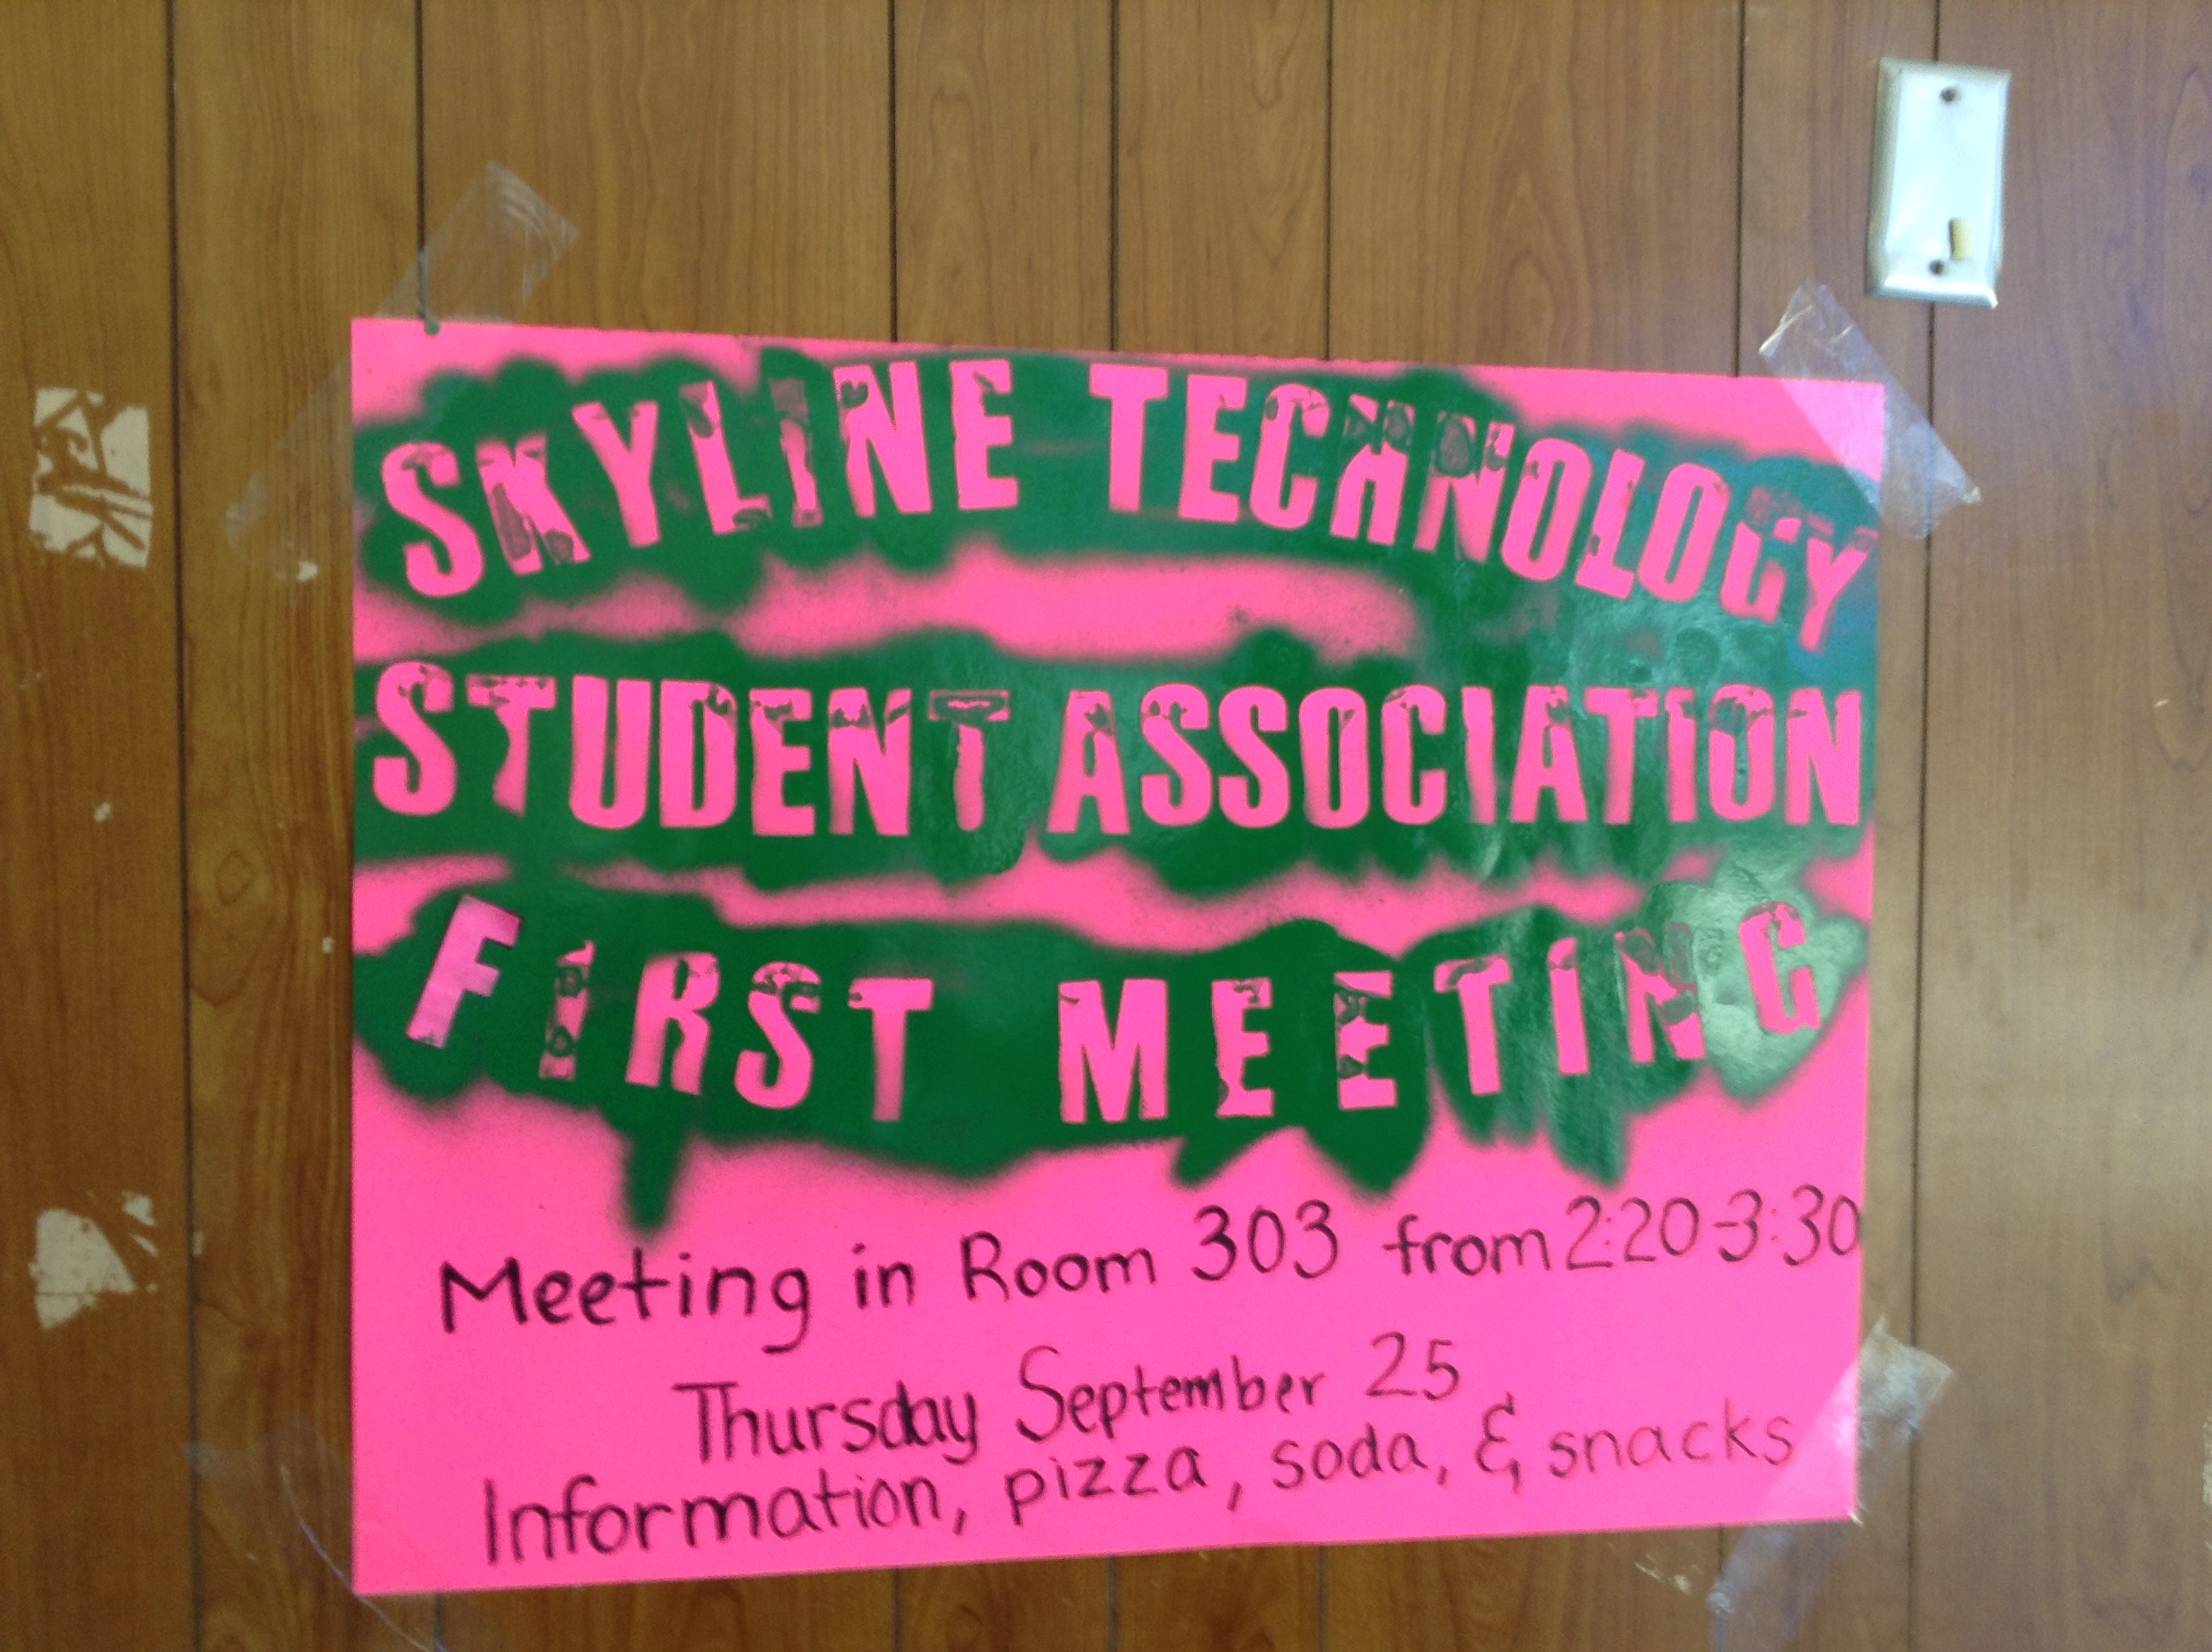 SKYLINE TECHNOLOGY
STUDENT ASSOCIATION
FIRST MEETING
Meeting in Room 303 from 2:20-3:30
Thursday September 25
Information, pizza, soda, & snacks